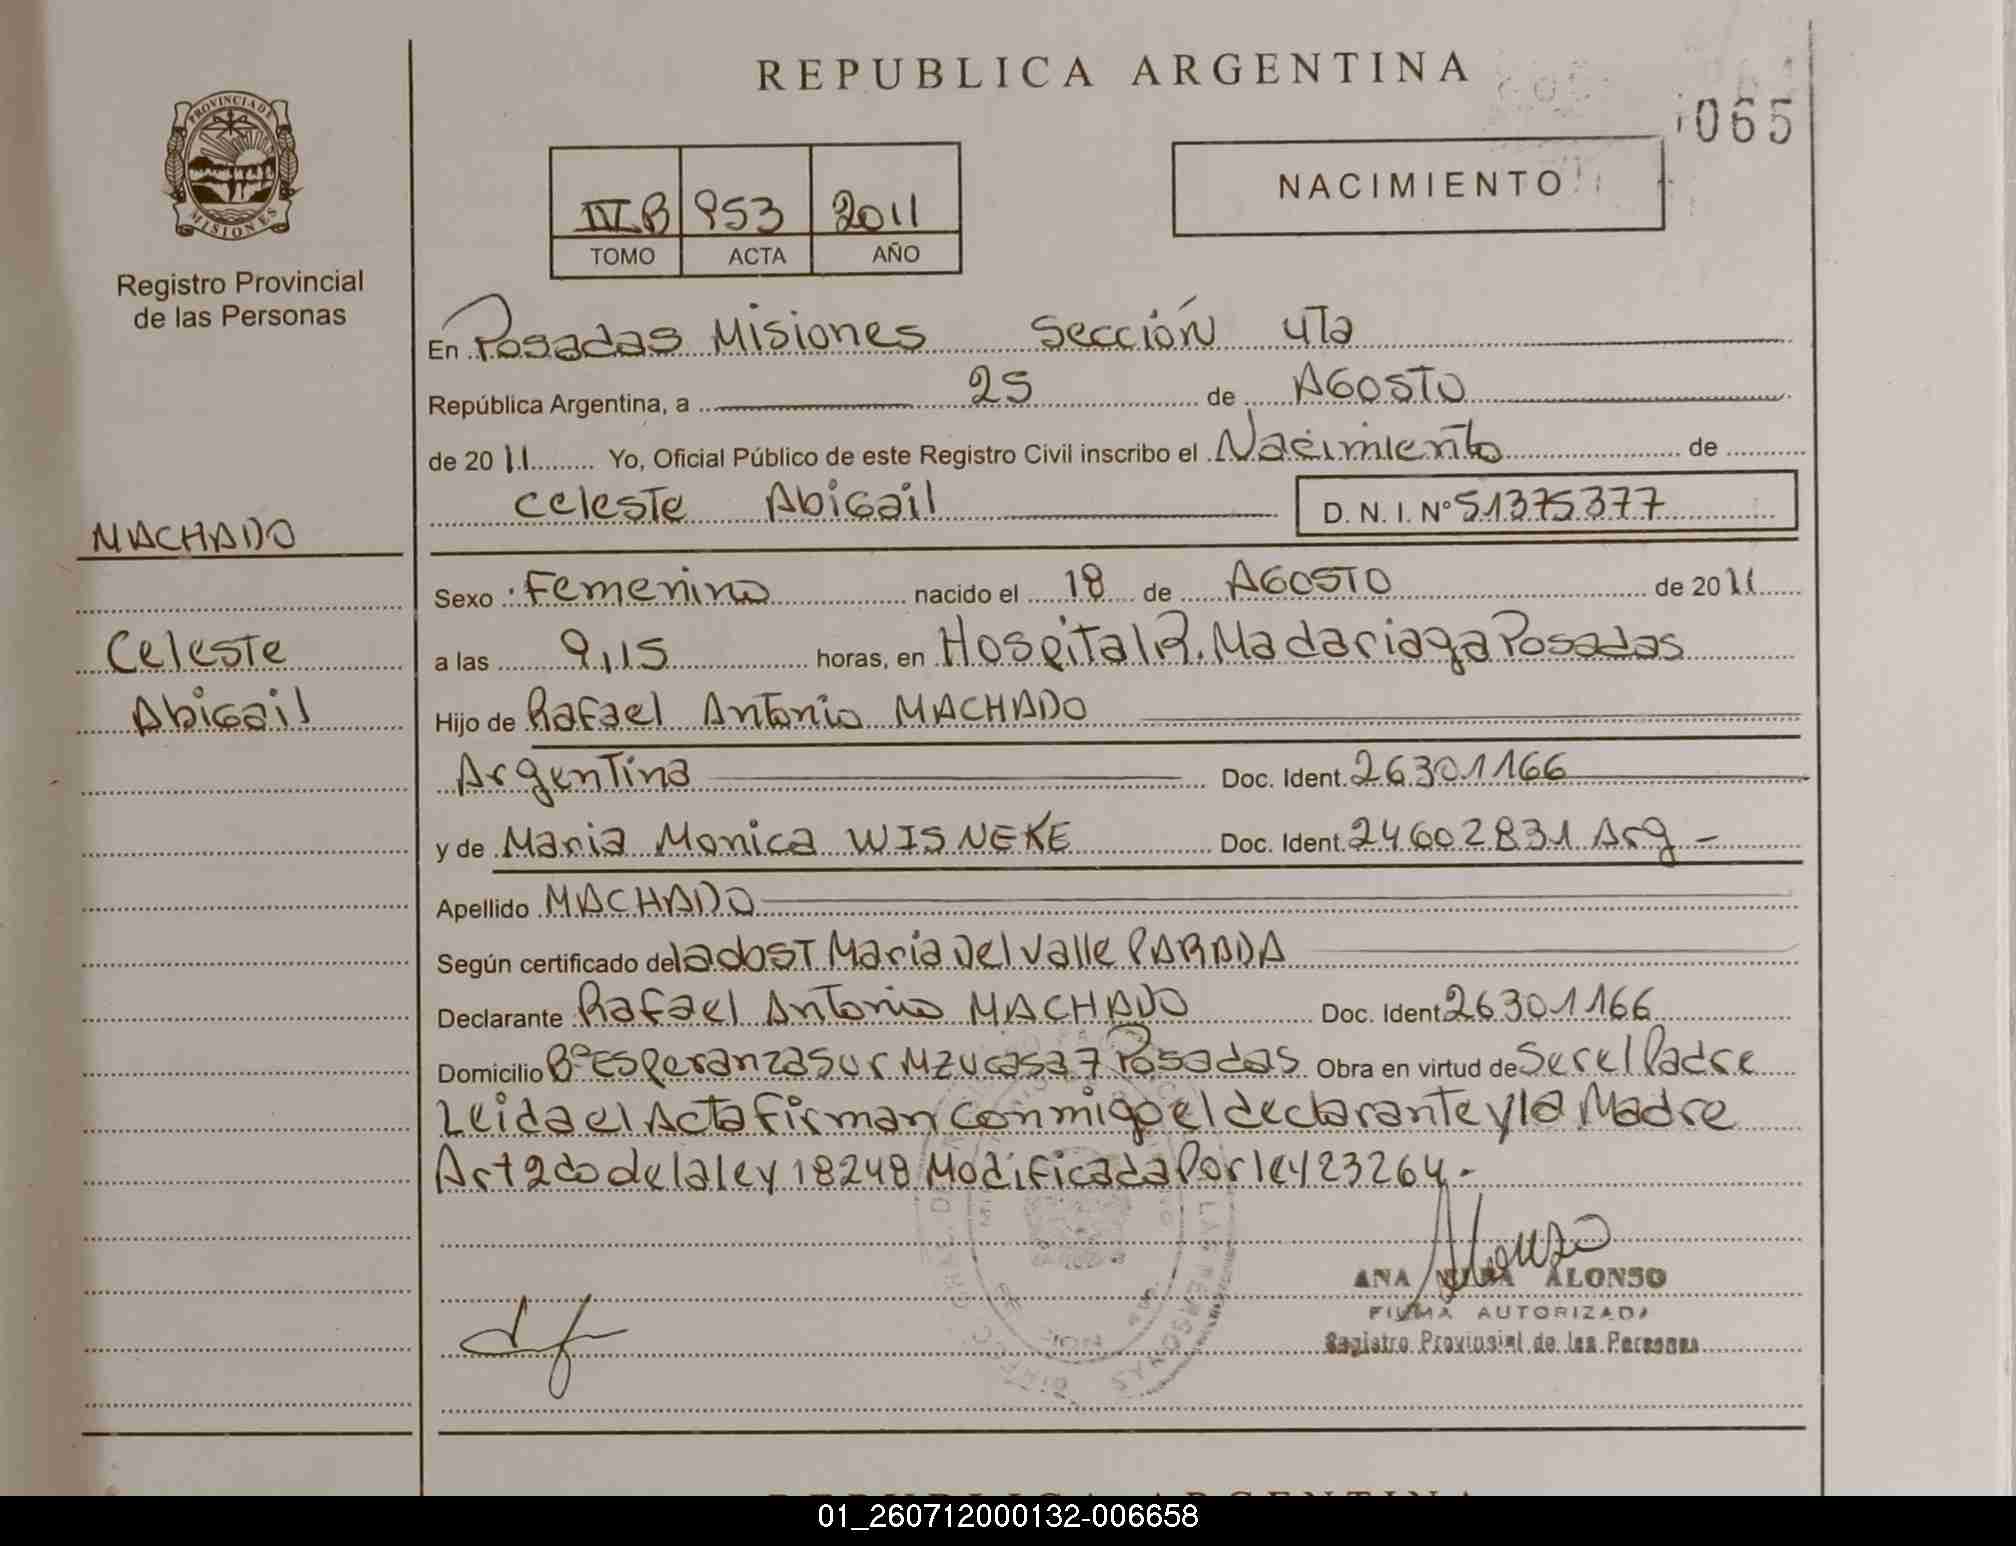 REPUBLICA ARGENTINA
065
PROVINCIA DE
MISIONES
Registro Provincial
de las Personas
IV B 953 2011
TOMO ACTA AÑO
NACIMIENTO
En Posadas Misiones Sección 4Ta
República Argentina, a 25 de AGOSTO
de 2011 Yo, Oficial Público de este Registro Civil inscribo el Nacimiento de
Celeste Abigail D. N. I. Nº 51375377
MACHADO
Celeste
Abigail
Sexo : Femenino nacido el 18 de AGOSTO de 2011
a las 9,15 horas, en Hospital R. Madariaga Posadas
Hijo de Rafael Antonio MACHADO
Argentina Doc. Ident. 26301166
y de Maria Monica WISNEKE Doc. Ident. 24602831 Arg -
Apellido MACHADO
Según certificado de la obst Maria Del Valle PARADA
Declarante Rafael Antonio MACHADO Doc. Ident 26301166
Domicilio Bº Esperanza Sur Mz casa 7 Posadas Obra en virtud de Ser el Padre
Leida el Acta Firman conmigo el declarante y la Madre
Art 2do de la ley 18248 Modificada Por ley 23264 -
Alonso
ANA ALONSO
FIRMA AUTORIZADA
Registro Provincial de las Personas
REPUBLICA ARGENTINA
01_260712000132-006658